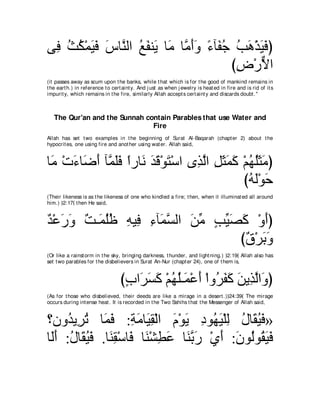 ﴿فَيَذْهَبُ جُفَآءً وَأَمَّا مَا يَنفَعُ النَّاسَ فَيَمْكُثُ فِى
الاٌّرْضِ﴾
(it passes away as scum upon the banks, while that which is for the good of mankind remains in
the earth.) in reference to certainty. And just as when jewelry is heated in fire and is rid of its
impurity, which remains in the fire, similarly Allah accepts certainty and discards doubt.''
The Qur'an and the Sunnah contain Parables that use Water and
Fire
Allah has set two examples in the beginning of Surat Al-Baqarah (chapter 2) about the
hypocrites, one using fire and another using water. Allah said,
﴿مَثَلُهُمْ كَمَثَلِ الَّذِى اسْتَوْقَدَ نَاراً فَلَمَّآ أَضَاءَتْ مَا
حَوْلَهُ﴾
(Their likeness is as the likeness of one who kindled a fire; then, when it illuminated all around
him.) ﴿2:17﴾ then He said,
﴿أَوْ كَصَيِّبٍ مِّنَ السَّمَآءِ فِيهِ ظُلُمَـتٌ وَرَعْدٌ
وَبَرْقٌ﴾
(Or like a rainstorm in the sky, bringing darkness, thunder, and lightning.) ﴿2:19﴾ Allah also has
set two parables for the disbelievers in Surat An-Nur (chapter 24), one of them is,
﴿وَالَّذِينَ كَفَرُواْ أَعْمَـلُهُمْ كَسَرَابٍ﴾
(As for those who disbelieved, their deeds are like a mirage in a desert.)﴿24:39﴾ The mirage
occurs during intense heat. It is recorded in the Two Sahihs that the Messenger of Allah said,
«فَيُقَالُ لِلْيَهُودِ يَوْمَ الْقِيَامَةِ: فَمَا تُرِيدُونَ؟
فَيَقُولُونَ: أَيْ رَبَّنَا عَطِشْنَا فَاسْقِنَا. فَيُقَالُ: أَلَا